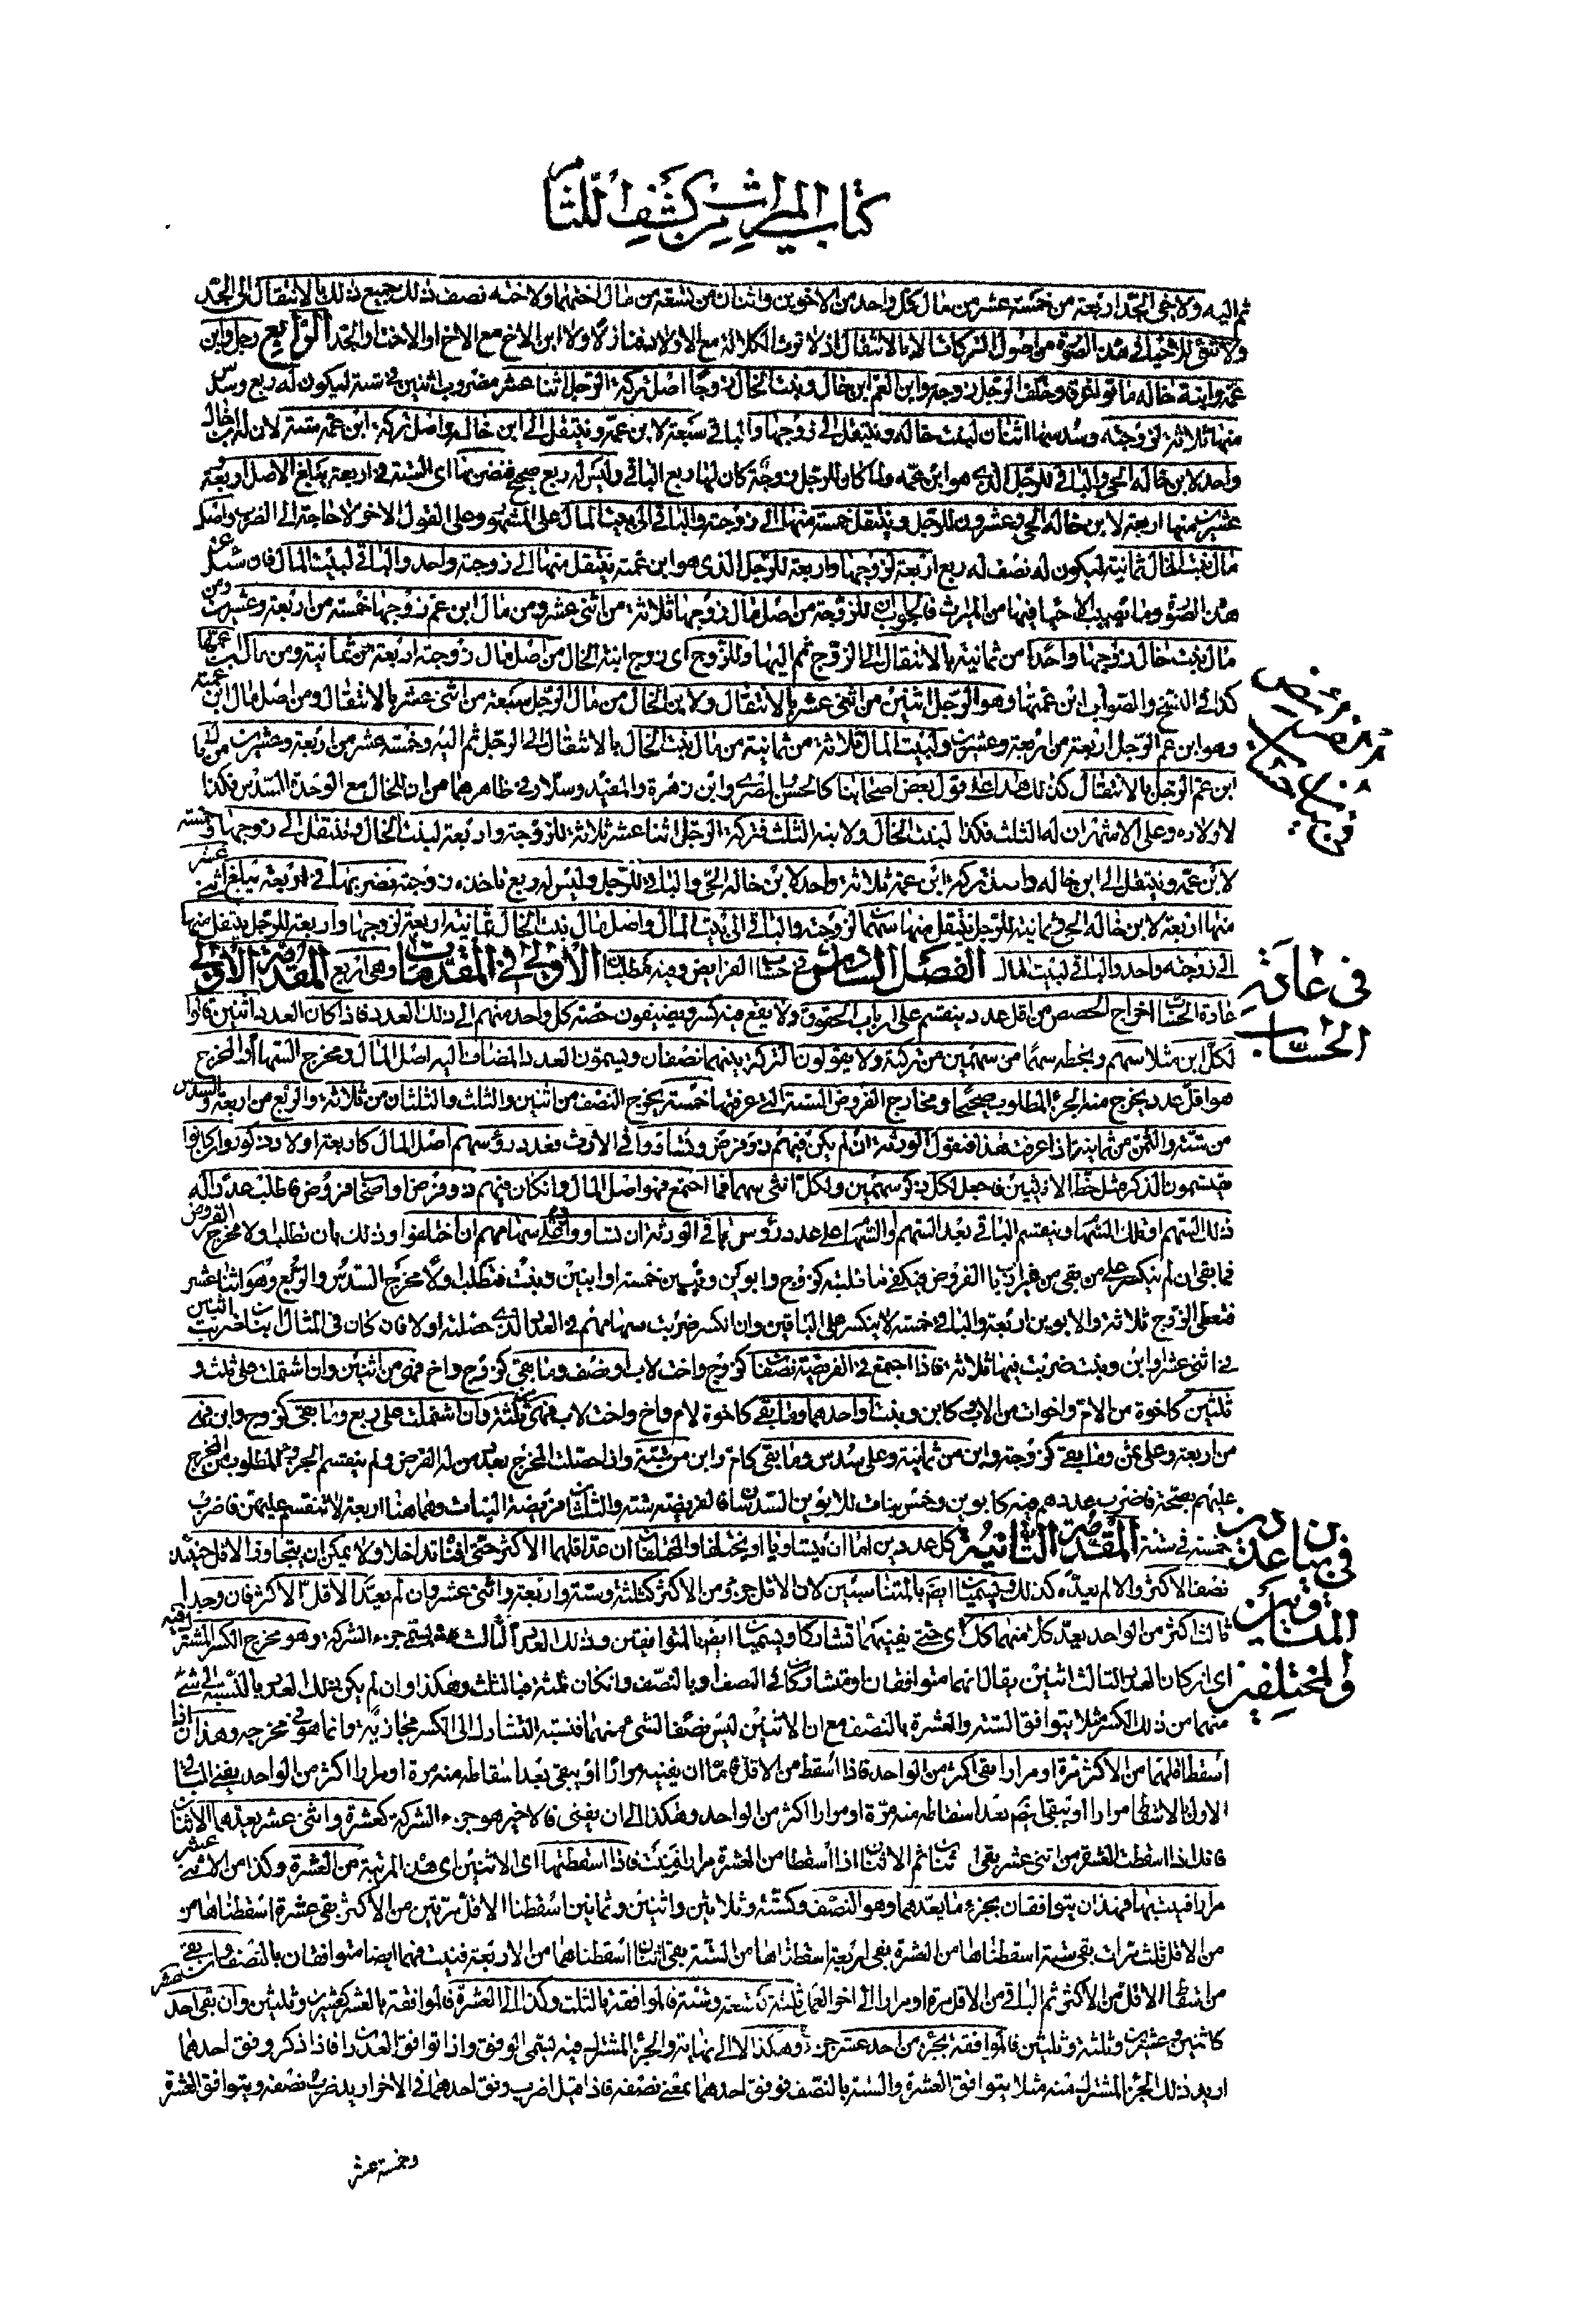 كتاب الميراث من كشف اللثام
ثم اليه ولاخى الجد اربعة من خمسة عشر من مال كل واحد من الاخوين واثنان من تسعة من مال اختهما ولاخته نصف ذلك جميع ذلك بالانتقال الى الجد
ولا شئ للاخيه في هذه الصورة من اصول التركات الا بالانتقال اذ لا توث الكلالة مع الاولاد فنازلا ولا ابن الاخ مع الاخ او الاخت او الجد الرابع رجل وابن
عمته وابنة خاله ماتوا غرقى وخلف الرجل زوجة وابن العم ابن خال وبنت الخال زوجا اصل تركة الرجل اثنا عشر مضروب اثنين في ستة ليكون له ربع وسدس
منها ثلاثة لزوجته وسدسها اثنان لبنت خاله وينتقل الى زوجها والباقي سبعة لابن عمه وينتقل الى ابن خاله واصل تركة ابن عمه ستة لان له ابن خال
واحد لابن خاله الحي والباقي للرجل الذي هو ابن عمه ولما كان للرجل زوجة كان لها ربع الباقي وليس له ربع صحيح فضربنا اى الستة في اربعة يبلغ الاصل اربعة
عشرين منها اربعة لابن خاله الحي وعشرون للرجل وينتقل خمسة منها الى زوجته والباقي الى بيت المال على المشهور وعلى القول الاخر لا حاجة الى الضرب واصل
مال بنت الخال ثمانية ليكون له نصف له ربع اربعة لزوجها واربعة للرجل الذى هو ابن عمته ينتقل منها الى زوجته واحد والباقي لبيت المال فان سئل عن
هذه الصورة وما نصيب الاحياء فيها من الميراث فالجواب للزوجة من اصل مال زوجها ثلاثة من اثنى عشر ومن مال ابن عم زوجها خمسة من اربعة وعشرين ومن
مال بنت خال زوجها واحد من ثمانية بالانتقال الى الزوج ثم اليها وللزوج اى زوج ابنة الخال من اصل مال زوجته اربعة من ثمانية ومن مال ابن عمتها
كذا في النسخ والصواب ابن عمتها وهو الرجل اثنين من اثنى عشر بالانتقال ولابن الخال من مال الرجل سبعة من اثنى عشر بالانتقال ومن اصل مال ابن عمته
وهو ابن عم الرجل اربعة من اربعة وعشرين ولبيت المال ثلاثة من ثمانية من مال بنت الخال بالانتقال الى الرجل ثم اليه وخمسة عشر من اربعة وعشرين من مال
ابن عم الرجل بالانتقال كذلك هذا على قول بعض اصحابنا كالحسن المصرى وابن زهرة والمفيد وسلار في ظاهرهما من ان للخال مع الوحدة السدس فكذا
لاولاده وعلى الاشهر ان له الثلث فكذا لبنت الخال ولابنه الثلث فتركة الرجل اثنا عشر ثلاثة للزوجة واربعة لبنت الخال وتنتقل الى زوجها وخمسة
لابن عمه وينتقل الى ابن خاله واصل تركة ابن عمه ثلاثة واحد لابن خاله الحي والباقي للرجل وليس له ربع تاخذه زوجته فضربنها في اربعة يبلغ اثنى عشر
منها اربعة لابن خاله الحي وثمانية للرجل ينتقل منها سهمان لزوجته والباقي الى بيت المال واصل مال بنت الخال ثمانية اربعة لزوجها واربعة للرجل ينتقل منها
الى زوجته واحد والباقي لبيت المال الفصل السادس في حساب الفرايض وفيه مطلبان الاول في المقدمات وهي اربع المقدمة الاولى
عادة الحساب اخراج الحصص من اقل عدد ينقسم على ارباب الحقوق ولا يقع فيه كسر ويضيفون حصة كل واحد منهم الى ذلك العدد فاذا كان العدد اثنين قالوا
لكل ابن مثلا سهم ويخطه سهما من سهمين من تركته ولا يقولون التركة بينهما نصفان ويسمون العدد المضاف اليه اصل المال ومخرج السهام والمخرج
هو اقل عدد يخرج منه الجزء المطلوب صحيحا ومخارج الفروض الستة التي عرفتها خمسة يخرج النصف من اثنين والثلث والثلثان من ثلاثة والربع من اربعة والسدس
من ستة والثمن من ثمانية اذا عرفت هذا فنقول الورثة ان لم يكن فيهم ذو فرض وتساووا في الارث فعدد رؤسهم اصل المال كاربعة اولاد ذكور وان كانوا
يقتسمون للذكر مثل حظ الانثيين فاجعل لكل ذكر سهمين ولكل انثى سهما فما اجتمع فهو اصل المال وان كان فيهم ذو فرض او اصحاب فروض فاطلب عددا له
ذلك السهم او تلك السهام وينقسم الباقي بعد السهم والسهام على عدد رؤس باقي الورثة ان تساووا وعلى سهامهم ان اختلفوا وذلك بان تطلب اولا مخرج الفروض
فما بقي ان لم ينكسر على من بقي من غير ارباب الفروض فيكفى ما طلبته كزوج وابوين وبنين خمسة او ابنين وبنت فتطلب اولا مخرج السدس والربع وهو اثنا عشر
فتعطى الزوج ثلاثة والابوين اربعة والباقي خمسة لا ينكسر على الباقين وان انكسر ضربت سهامهم في العدد الذي حصلته اولا فان كان في المثال بنتان ضربت اثنين
في اثنى عشر او ابن وبنت ضربت فيها ثلاثة فاذا اجتمع في الفريضة نصفان كزوج واخت لاب او نصف وما بقي كزوج واخ فهى من اثنين وان اشتملت على ثلث و
ثلثين كاخوة من الام واخوات من الاب كابن وبنت او احدهما وما بقي كاخوة لام واخ واخت لاب فهى ثلثة وان اشتملت على ربع وما بقي كزوج وابن فهى
من اربعة وعلى ثمن وما بقي كزوجة وابن من ثمانية وعلى سدس وما بقي كام وابن من ستة واذا حصلت المخرج بعدد من له الفرض ولم ينقسم الجزء المطلوب من المخرج
عليهم بصحة فاضرب عددهم فيه كابوين وخمس بنات للابوين السدسان فالفريضة ستة والثلثان فريضة البنات وهما هنا اربعة لا تنقسم عليهن فاضرب
خمسة في ستة المقدمة الثانية كل عددين اما ان يتساويا او يختلفا والمختلفان ان عد اقلهما الاكثر حتى افناه تداخلا ولا يمكن ان يتجاوز الاقل حينئذ
نصف الاكثر والا لم يعده كذلك ويسميان ايضا بالمتناسبين لان الاقل جزء من الاكثر كثلثة وستة واربعة واثنى عشر وان لم يعد الاقل الاكثر فان وجد
ثالث اكثر من الواحد يعد كلا منهما كذلك اى حتى يفنيهما تشاركا ويسميان ايضا بالمتوافقين وذلك العدد الثالث يسمى جزء الشركة وهو مخرج الكسر المشترك فيه
اى ان كان العدد الثالث اثنين يقال انهما متوافقان او متشاركان في النصف او بالنصف وان كان ثلثة فبالثلث وهكذا وان لم يكن ذلك العدد بالنسبة الى شئ
منهما من ذلك الكسر مثلا يتوافق الستة والعشرة بالنصف مع ان الاثنين ليس نصفا لشئ منهما فنسبة التشارك الى الكسر مجازية وانما هو في مخرجه وهذان اذا
اسقط اقلهما من الاكثر مرة او مرارا بقى اكثر من الواحد فاذا اسقط من الاقل فاما ان يفنيه مرارا او يبقى بعد اسقاطه منه مرة او مرارا اكثر من الواحد يفنى الباقي
الاول بالاسقاط مرارا او يبقى ايضا بعد اسقاطه منه مرة او مرارا اكثر من الواحد وهكذا الى ان يفنى فالاخير هو جزء الشركة كعشرة واثنى عشر يعدهما الاثنان
فانك اذا اسقطت العشرة من اثنى عشر بقى اثنان ثم الاثنان اذا اسقطا من العشرة مرارا فنيت فاذا اسقطتها اى الاثنين اى هذه المرتبة من العشرة وكذا من الاثنى عشر
مرارا فنيت بها فهذان يتوافقان بجزء ما يعدهما وهو النصف وكستة وثلاثين واثنين وثمانين اسقطنا الاقل مرتين من الاكثر بقى عشرة اسقطناها من
من الاقل ثلث مرات بقى ستة اسقطناها من العشرة بقى اربعة اسقطناها من الستة بقى اثنان اسقطناهما من الاربعة فنيت فهما ايضا متوافقان بالنصف
من اسقاط الاقل من الاكثر ثم الباقي من الاقل مرة او مرارا الى اخر العمل ثلثة كتسعة وستة فالموافقة بالثلث وكذا الى العشرة فالموافقة بالعشر كعشرين وثلثين وان بقى احد عشر
كاثنين وعشرين وثلثة وثلثين فالموافقة بجزء من احد عشر جزء وهكذا لا الى نهاية والجزء المشترك فيه يسمى الوفق واذا توافق العددان فاذا ذكر وفق احدهما
اريد ذلك الجزء المشترك منه مثلا يتوافق العشرة والستة بالنصف فوفق احدهما بمعنى نصفه فاذا قيل اضرب وفق احدهما في الاخر اريد ضرب نصفه ويتوافق العشرة
وخمسة عشر
في عادة
الحساب
في بيان عددين
المتساويين
والمختلفين